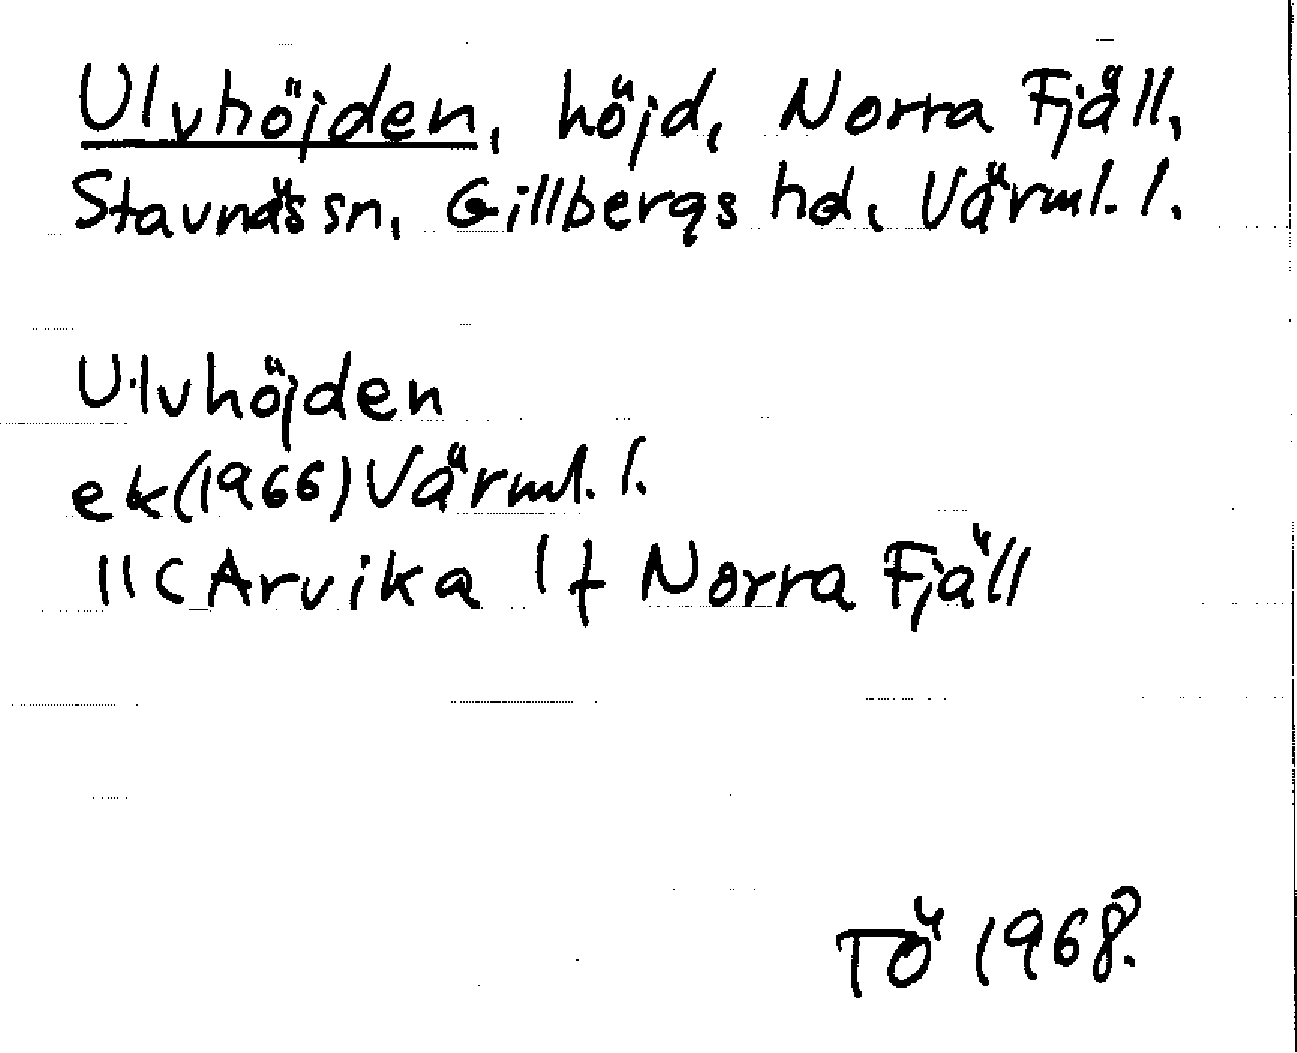 Ulvhöjden, höjd, Norra Fjäll,
Stavnäs sn, Gillbergs hd, Värml. l.
Ulvhöjden
ek (1966) Värml. l.
11C Arvika 1 f Norra Fjäll
TÖ 1968.